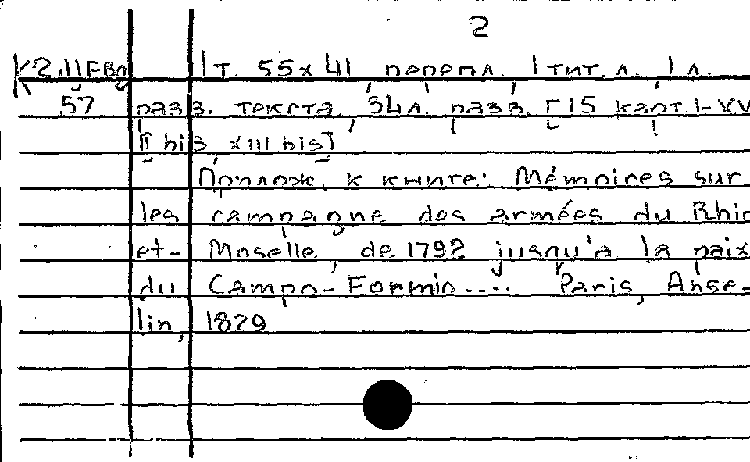 2
К2.IIЕвр 1 т. 55x41, перепл., 1 тит. л., 1 л.
57 разв. текста, 34 л. разв. [15 карт. I-XV
[I bis, XIII bis]
Прилож. к книге: Mémoires sur
les campagne des armées du Rhin
et- Moselle, de 1792 jusqu'a la paix
du Campo-Formio.... Paris, Anse-
lin, 1829